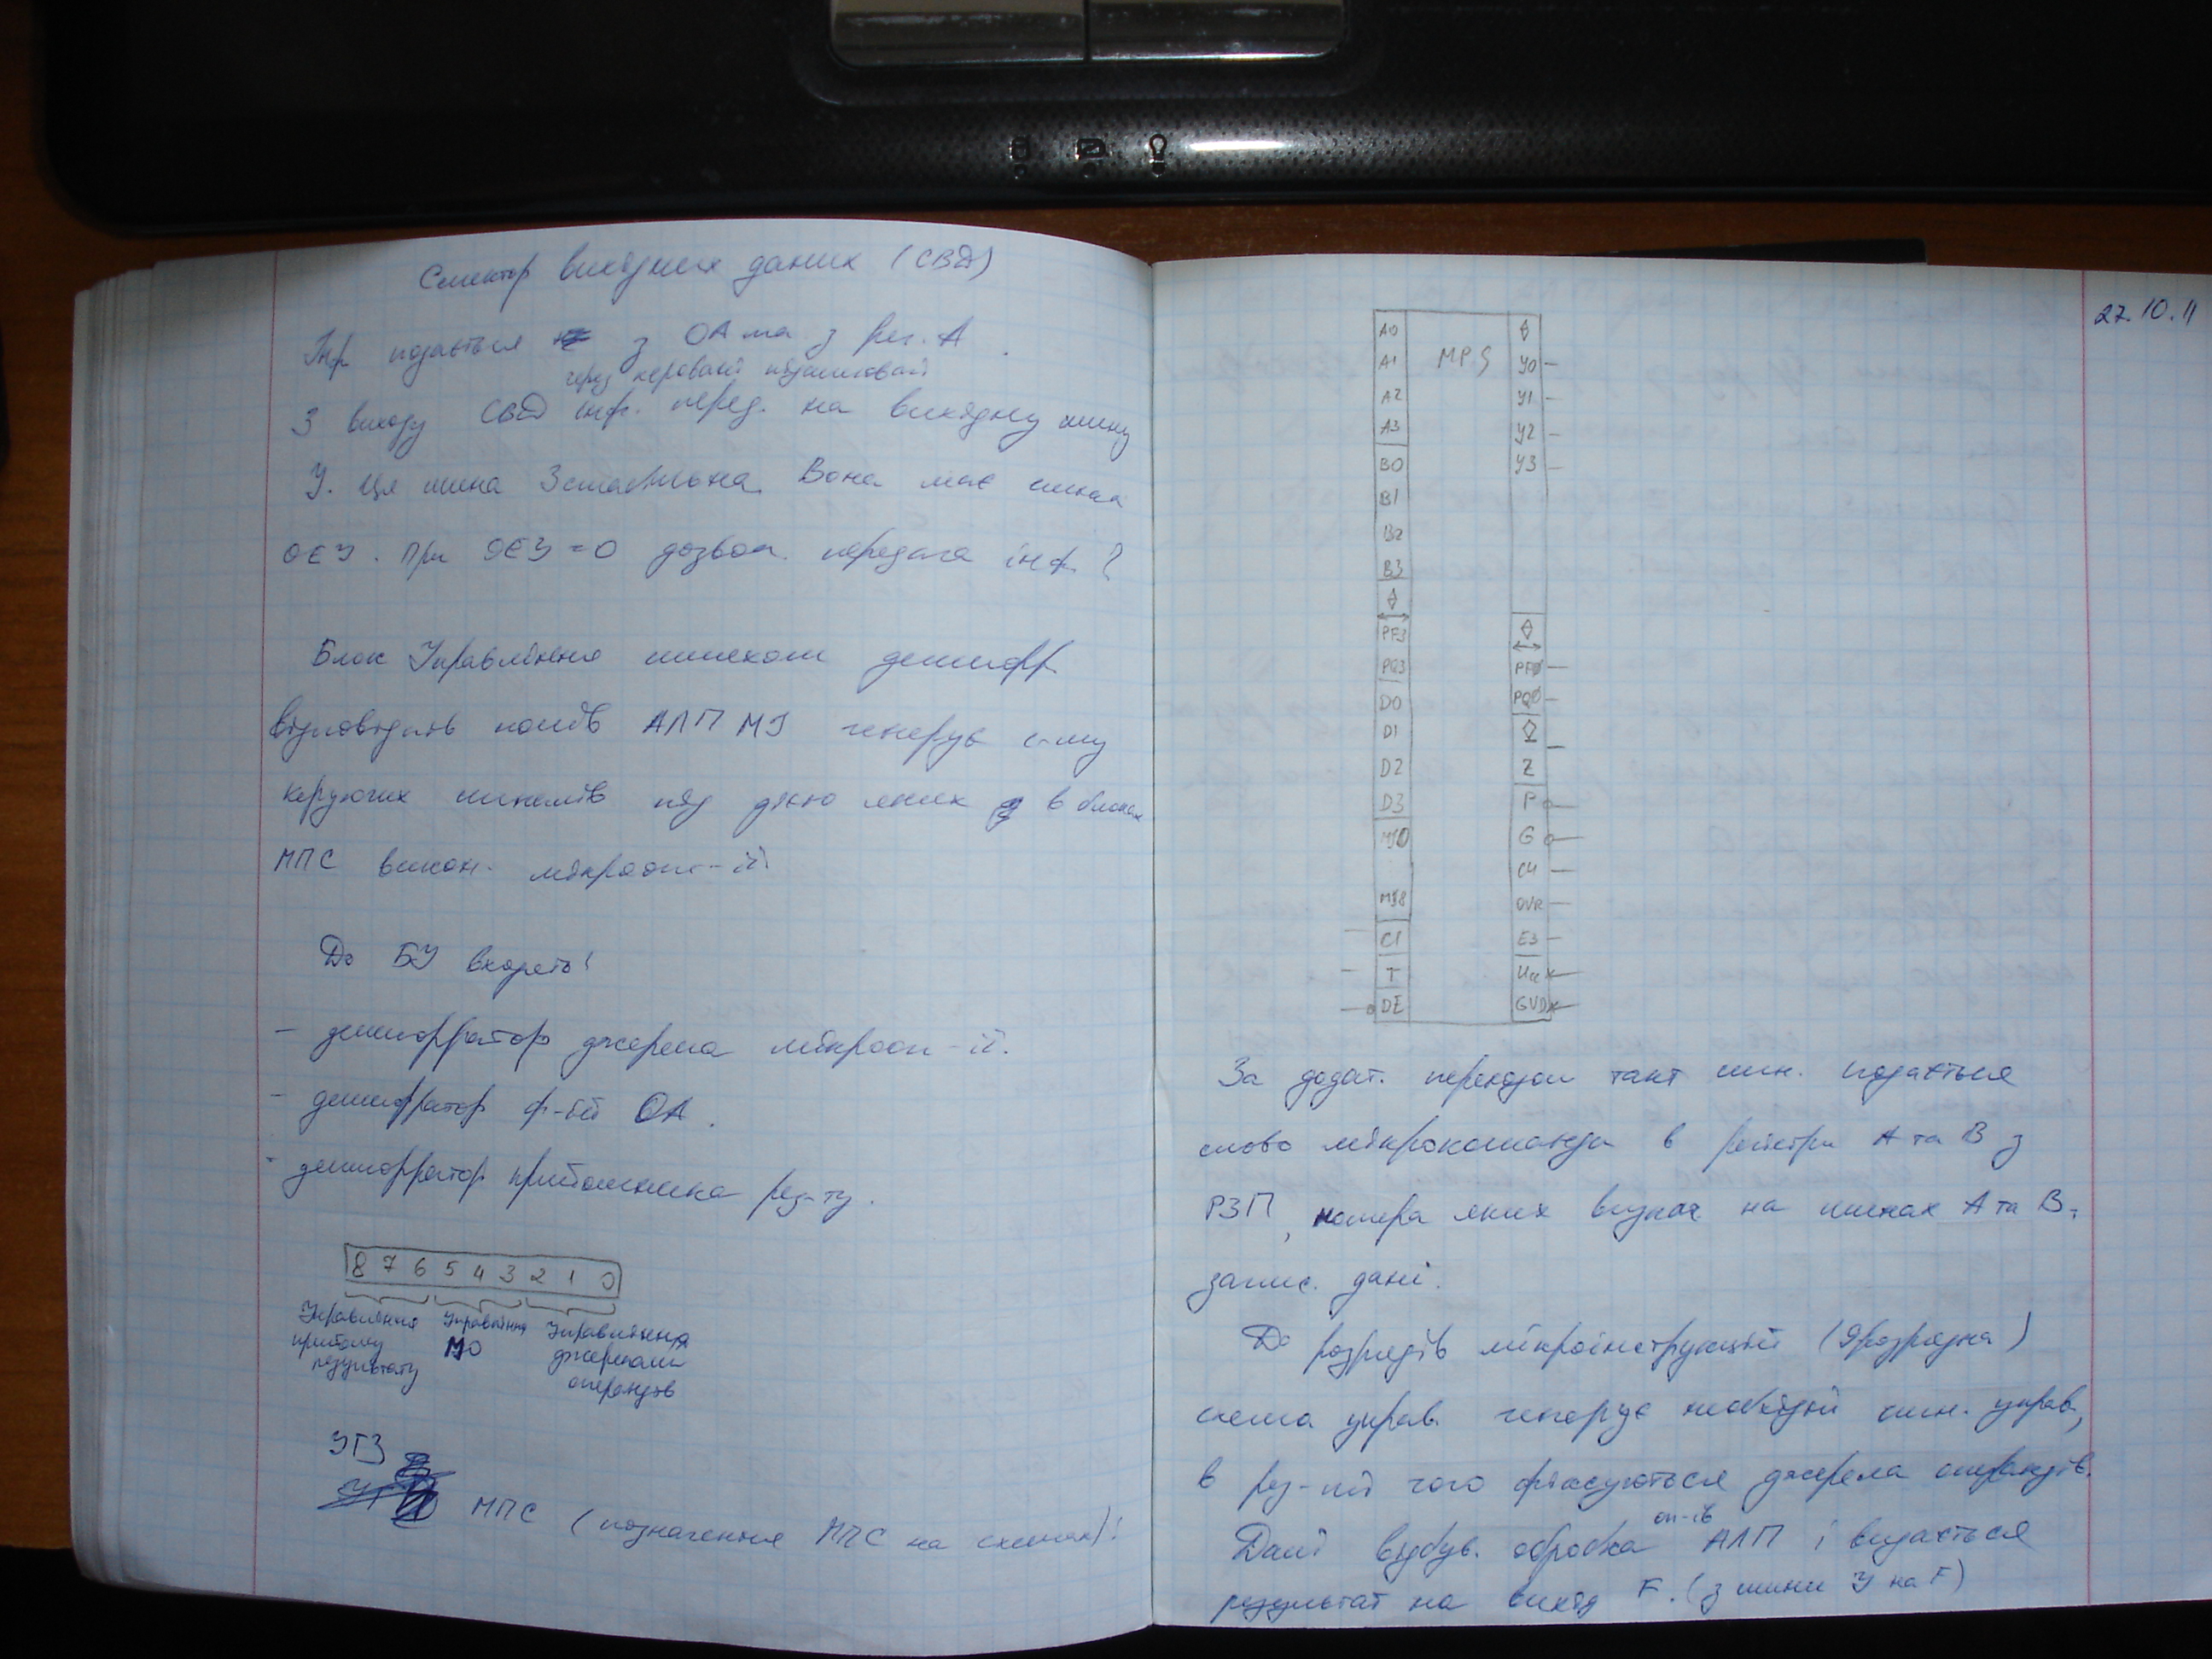 Селектор вихідних даних (СВД)
Інф подається з ОА та з рег. А
через керований підсилювач
З виходу СВД інф. перед. на вихідну шину
У. Ця шина 3 стабільна. Вона має сигнал
ОЕУ. При ОЕУ = 0 дозвол. передача інф.
Блок Управління шляхом дешифр
відповідних полів АЛП МІ генерує с-му
керуючих сигналів під дією яких в блоках
МПС викон. мікрооп-ії.
До БУ входять:
- дешифратор джерела мікрооп-ії.
- дешифратор ф-ій ОА.
- дешифратор приймача рез-ту.
8 7 6 5 4 3 2 1 0
Управління Управління Управління
прийому МО джерелами
результату операндів
УГЗ
МПС (позначення МПС на схемах):
27.10.11
A0 MPS ◊
A1 У0
A2 У1
A3 У2
B0 У3
B1
B2
B3
◊
↔ ◊
PF3 ↔
PQ3 PF0
D0 PQ0
D1 ◊
D2 Z
D3 P
МІ0 G
C4
МІ8 OVR
C1 F3
T Ucc
OE GND
За додат. переходом такт сигн. подається
слово мікрокоманди в регістри А та В з
РЗП, номера яких визнач на шинах А та В,
запис. дані.
До розрядів мікроінструкцій (9розрядна)
схема управ. генерує необхідний сигн. управ,
в рез-ті чого фіксуються джерела операндів.
Далі відбув. обробка оп-ів АЛП і видається
результат на вихід F. (з шини У на F)